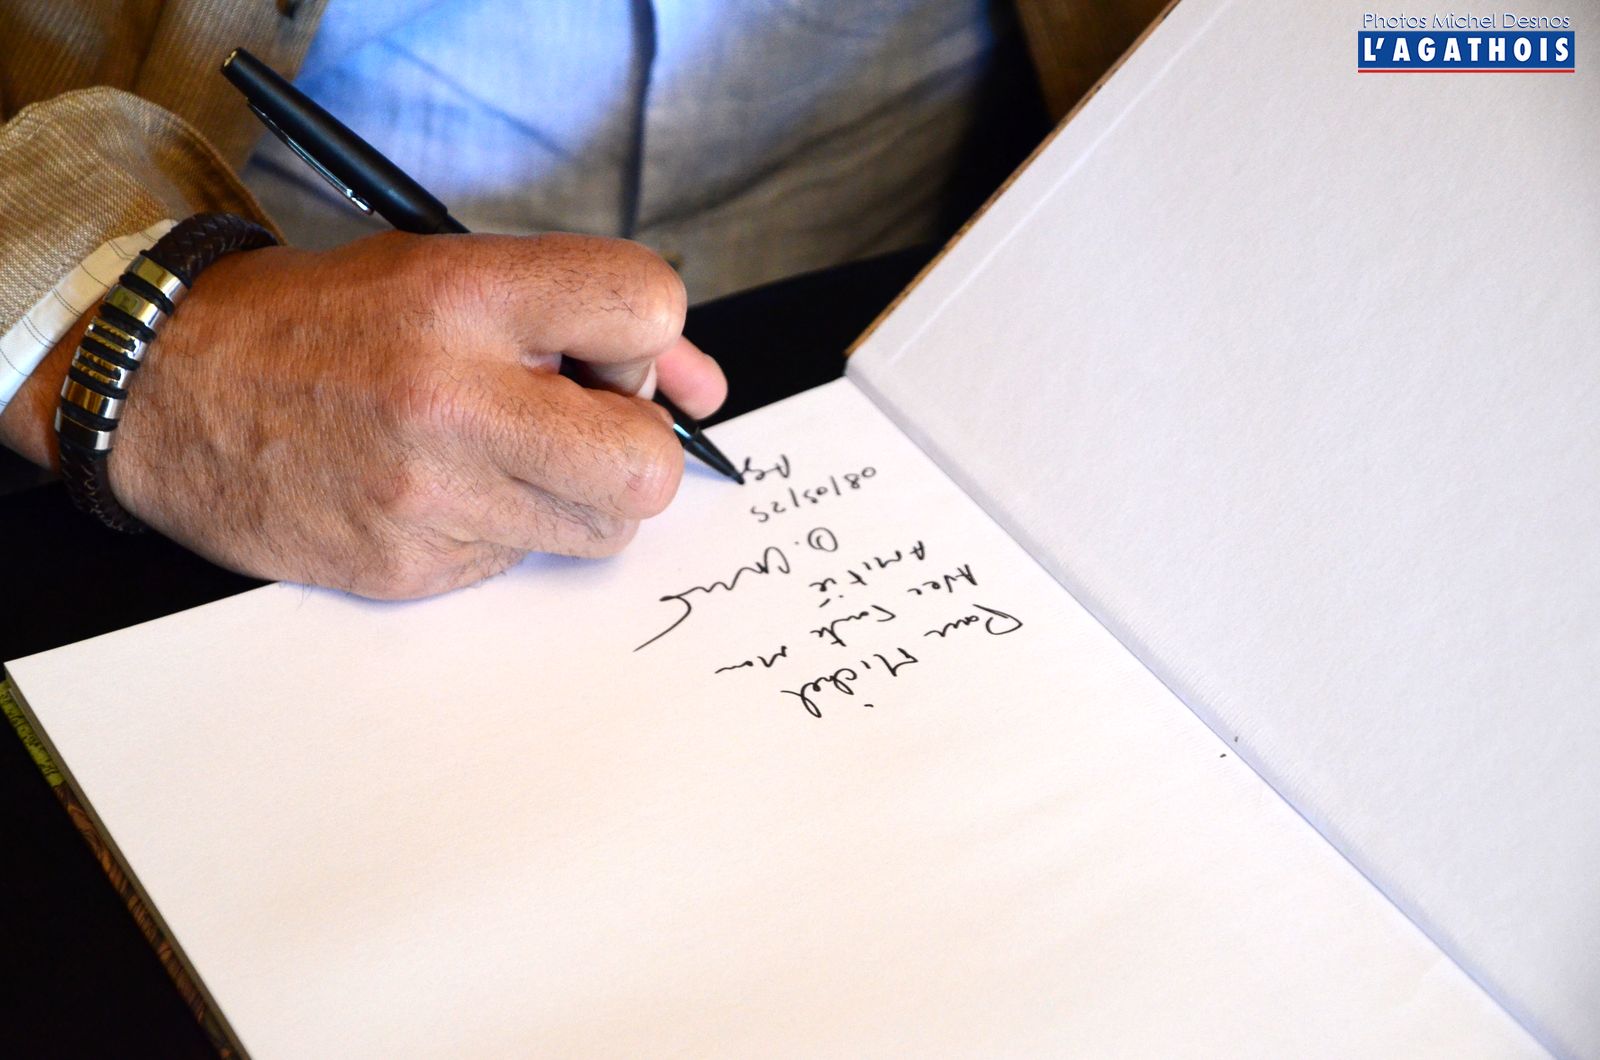 Photos Michel Desnos
L'AGATHOIS
Pour Michel
Avec toute mon
Amitié
D.
08/05/25
Ag